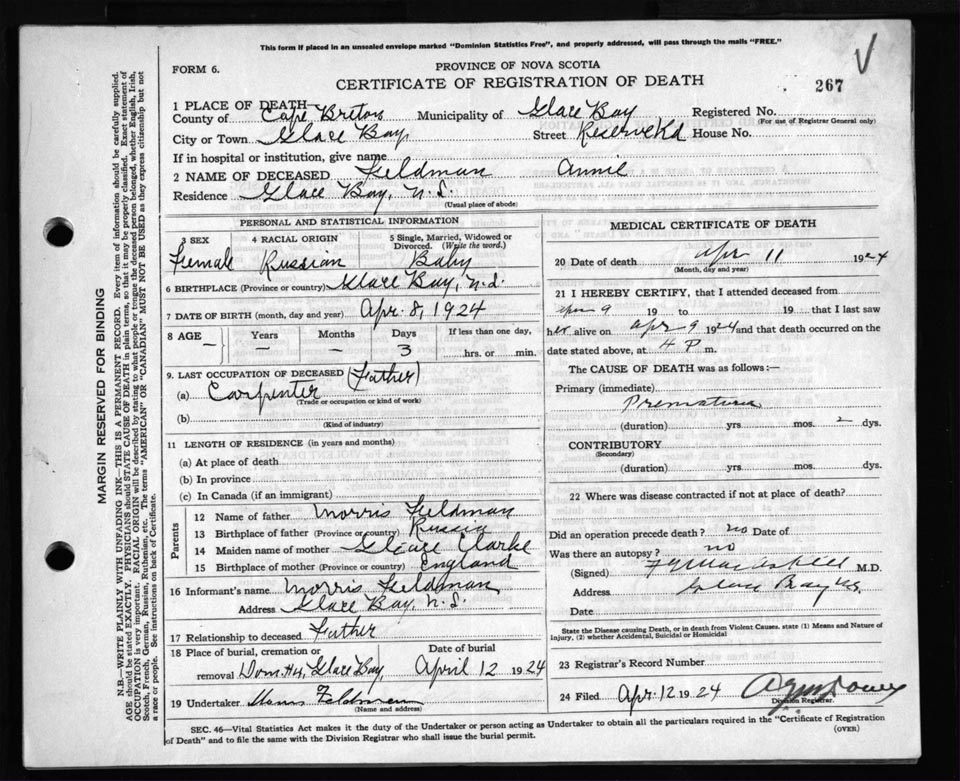 This form if placed in an unsealed envelope marked "Dominion Statistics Free", and properly addressed, will pass through the mails "FREE."
PROVINCE OF NOVA SCOTIA
FORM 6.
CERTIFICATE OF REGISTRATION OF DEATH
267
1 PLACE OF DEATH
County of Cape Breton Municipality of Glace Bay Registered No.
(For use of Registrar General only)
City or Town Glace Bay, Street Reserve Rd House No.
If in hospital or institution, give name
2 NAME OF DECEASED Feldman Annie
Residence Glace Bay, N.S.
(Usual place of abode)
PERSONAL AND STATISTICAL INFORMATION
3 SEX 4 RACIAL ORIGIN 5 Single, Married, Widowed or Divorced. (Write the word.)
Female Russian Baby
6 BIRTHPLACE (Province or country) Glace Bay, N.S.
7 DATE OF BIRTH (month, day and year) Apr. 8, 1924
8 AGE Years Months Days If less than one day,
— — — 3 hrs. or min.
9. LAST OCCUPATION OF DECEASED (Father)
(a) Carpenter
(Trade or occupation or kind of work)
(b)
(Kind of industry)
11 LENGTH OF RESIDENCE (in years and months)
(a) At place of death
(b) In province
(c) In Canada (if an immigrant)
Parents
12 Name of father Morris Feldman
13 Birthplace of father (Province or country) Russia
14 Maiden name of mother Clarke
15 Birthplace of mother (Province or country) England
16 Informant's name Morris Feldman
Address Glace Bay, N.S.
17 Relationship to deceased Father
18 Place of burial, cremation or removal Date of burial
Glace Bay, April 12 1924
19 Undertaker Feldman
(Name and address)
MEDICAL CERTIFICATE OF DEATH
20 Date of death Apr 11 1924
(Month, day and year)
21 I HEREBY CERTIFY, that I attended deceased from
Apr 9 19 to 19 that I last saw
her alive on Apr 9 1924 and that death occurred on the
date stated above, at 4 P m.
The CAUSE OF DEATH was as follows:—
Primary (immediate)
Premature
(duration) yrs mos. 2 dys.
CONTRIBUTORY
(Secondary)
(duration) yrs. mos. dys.
22 Where was disease contracted if not at place of death?
Did an operation precede death? no Date of
Was there an autopsy? no
(Signed) M.D.
Address Glace Bay NS.
Date
State the Disease causing Death, or in death from Violent Causes, state (1) Means and Nature of
Injury, (2) whether Accidental, Suicidal or Homicidal
23 Registrar's Record Number
24 Filed Apr. 12 1924
Division Registrar.
SEC. 46—Vital Statistics Act makes it the duty of the Undertaker or person acting as Undertaker to obtain all the particulars required in the "Certificate of Registration
of Death" and to file the same with the Division Registrar who shall issue the burial permit.
(OVER)
MARGIN RESERVED FOR BINDING
N.B.—WRITE PLAINLY WITH UNFADING INK—THIS IS A PERMANENT RECORD. Every item of information should be carefully supplied.
AGE should be stated EXACTLY. PHYSICIANS should STATE CAUSE OF DEATH in plain terms, so that it may be properly classified. Exact statement of
OCCUPATION is very important. RACIAL ORIGIN will be described by stating to what people or tongue the deceased person belonged, whether English, Irish,
Scotch, French, German, Russian, Ruthenian, etc. The terms "AMERICAN" OR "CANADIAN" MUST NOT BE USED as they express citizenship but not
a race or people. See instructions on back of Certificate.